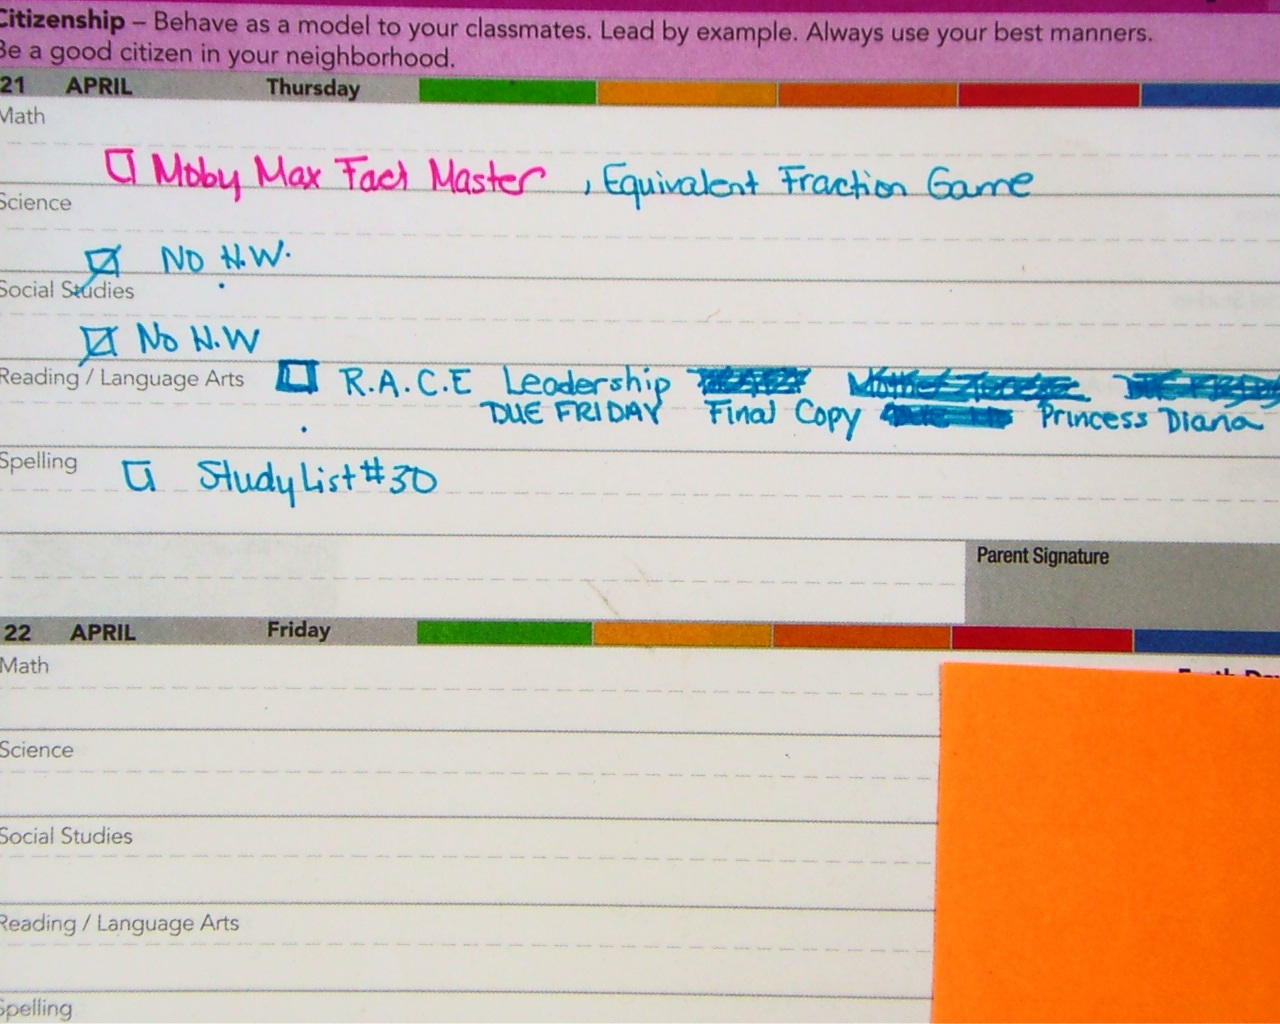 Citizenship – Behave as a model to your classmates. Lead by example. Always use your best manners.
Be a good citizen in your neighborhood.
21 APRIL Thursday
Math
Moby Max Fact Master , Equivalent Fraction Game
Science
No H.W.
Social Studies
No H.W
Reading / Language Arts R.A.C.E Leadership
DUE FRIDAY Final Copy Princess Diana
Spelling
Study List #30
Parent Signature
22 APRIL Friday
Math
Science
Social Studies
Reading / Language Arts
Spelling